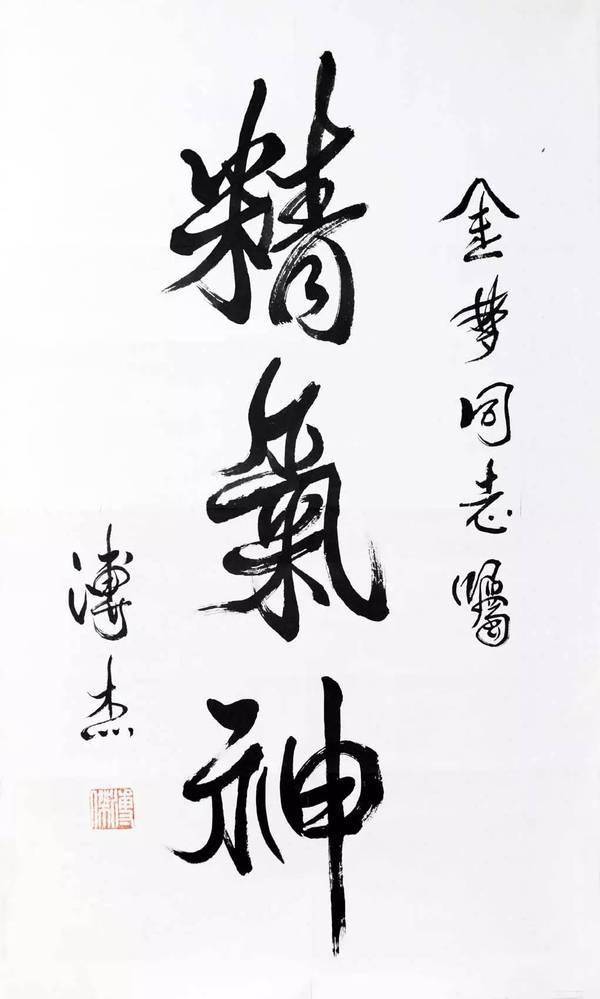 金夢同志囑
精氣神
溥杰
溥傑